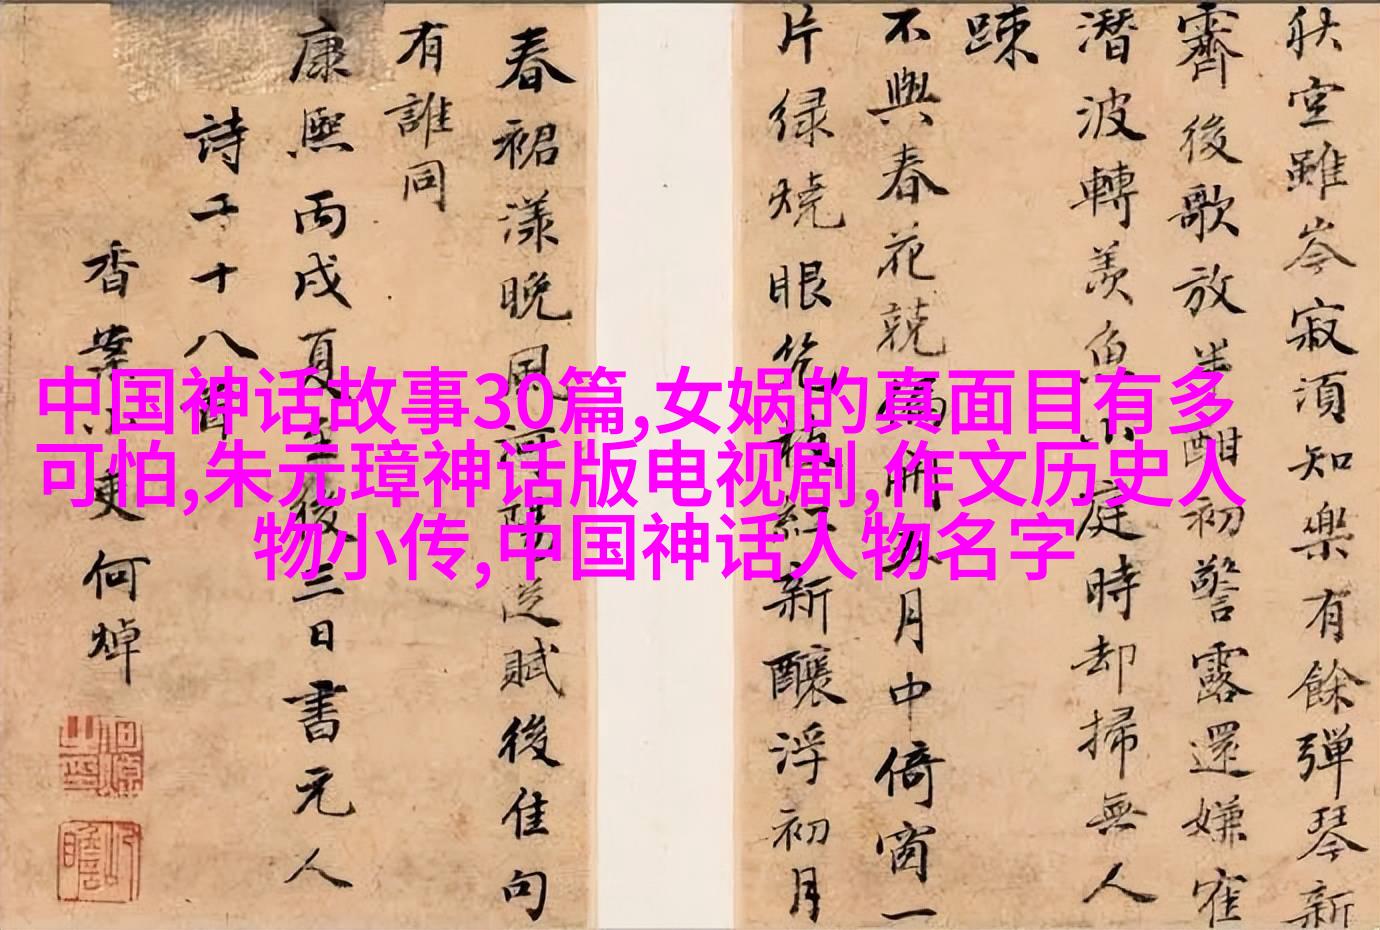 秋空雖岑寂須知樂有餘彈琴新
霽後歌放半酣初警露還嫌寉
潛波轉羨魚小庭時却掃無人
踈
不與春花競偏開五月中倚窗一
片緑燒眼幾枝紅新釀浮初月
春裙漾晚風河陽賦後佳句
有誰同
康熙丙戌夏至後三日書元人
詩二十八首
香案小吏何焯
中国神话故事30篇,女娲的真面目有多
可怕,朱元璋神话版电视剧,作文历史人
物小传,中国神话人物名字